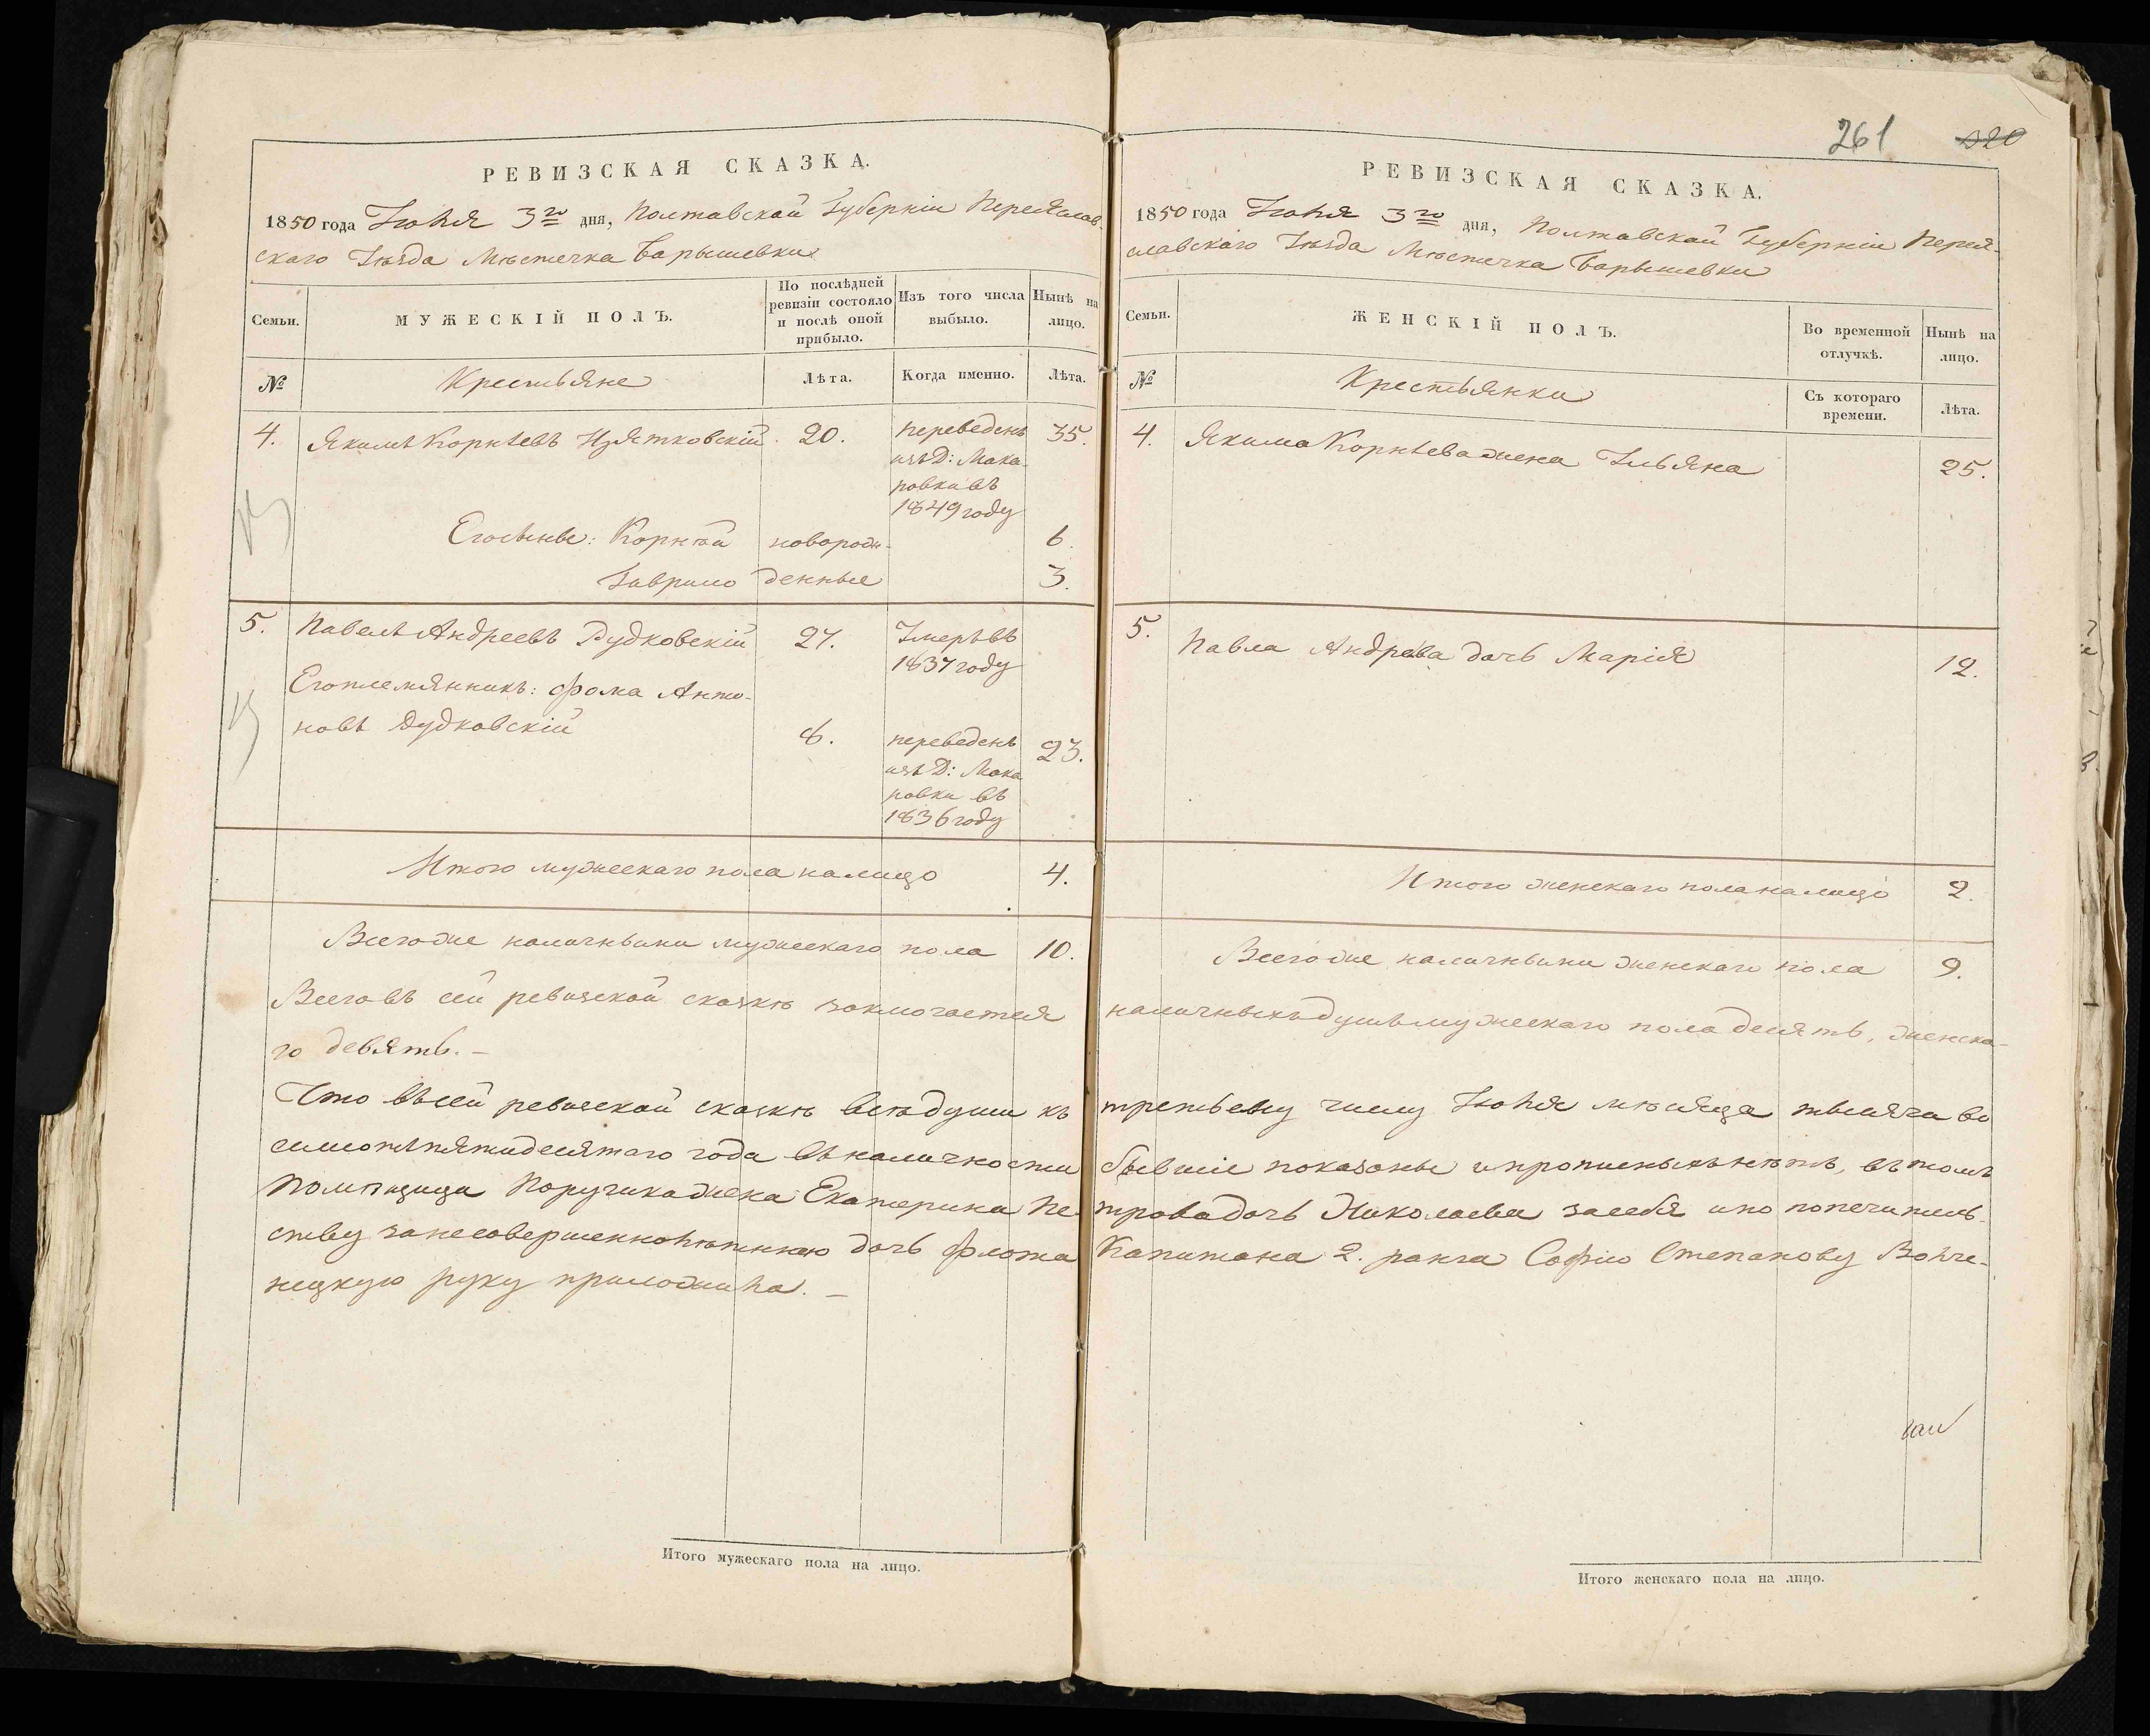 261 320
РЕВИЗСКАЯ СКАЗКА.
1850 года Іюня 3го дня, Полтавской Губерніи Переяслав-
скаго Уѣзда Мѣстечка Барышевки
Семьи.
МУЖЕСКІЙ ПОЛЪ.
По послѣдней ревизіи состояло и послѣ оной прибыло.
Изъ того числа выбыло.
Нынѣ на лицо.
№
Крестьяне
Лѣта.
Когда именно.
Лѣта.
4. Якимъ Корнѣевъ Изятковскій 20. переведенъ 35.
изъ Д: Мака-
ровки въ
1849 году
Его сыны: Корнѣй новорож- 6.
Гаврило денные 3.
5. Павелъ Андреевъ Дудковскій 27. Умеръ въ
1837 году
Его племянникъ: Фома Анто-
новъ Дудковскій 8. переведенъ 23.
изъ Д: Мака
ровки въ
1836 году
Итого мужескаго пола налицо 4.
Всего же наличными мужескаго пола 10.
Всего въ сей ревизской сказкѣ заключается
го девять.
Что въ сей ревизской сказкѣ всѣ души къ
семьсотъ пятидесятаго года въ наличности
Помѣщица Поручика жена Екатерина Пе-
ству за несовершеннолѣтнюю дочь флота
нецкую руку приложила.
Итого мужескаго пола на лицо.
РЕВИЗСКАЯ СКАЗКА.
1850 года Іюня 3го дня, Полтавской Губерніи Перея-
славскаго Уѣзда Мѣстечка Барышевки
Семьи.
ЖЕНСКІЙ ПОЛЪ.
Во временной отлучкѣ.
Нынѣ на лицо.
№
Крестьянки
Съ котораго времени.
Лѣта.
4. Якима Корнѣева жена Ульяна 25.
5. Павла Андреева дочь Марія 12.
Итого женскаго пола налицо 2.
Всего же наличными женскаго пола 9.
наличныхъ душъ мужескаго пола десять, женска-
третьему числу Іюня мѣсяца тысяча во
бывшіе показаны и прописныхъ нѣтъ, въ томъ
трова дочь Николаева за себя и по попечитель-
Капитана 2. ранга Софію Степанову Волче-
Итого женскаго пола на лицо.